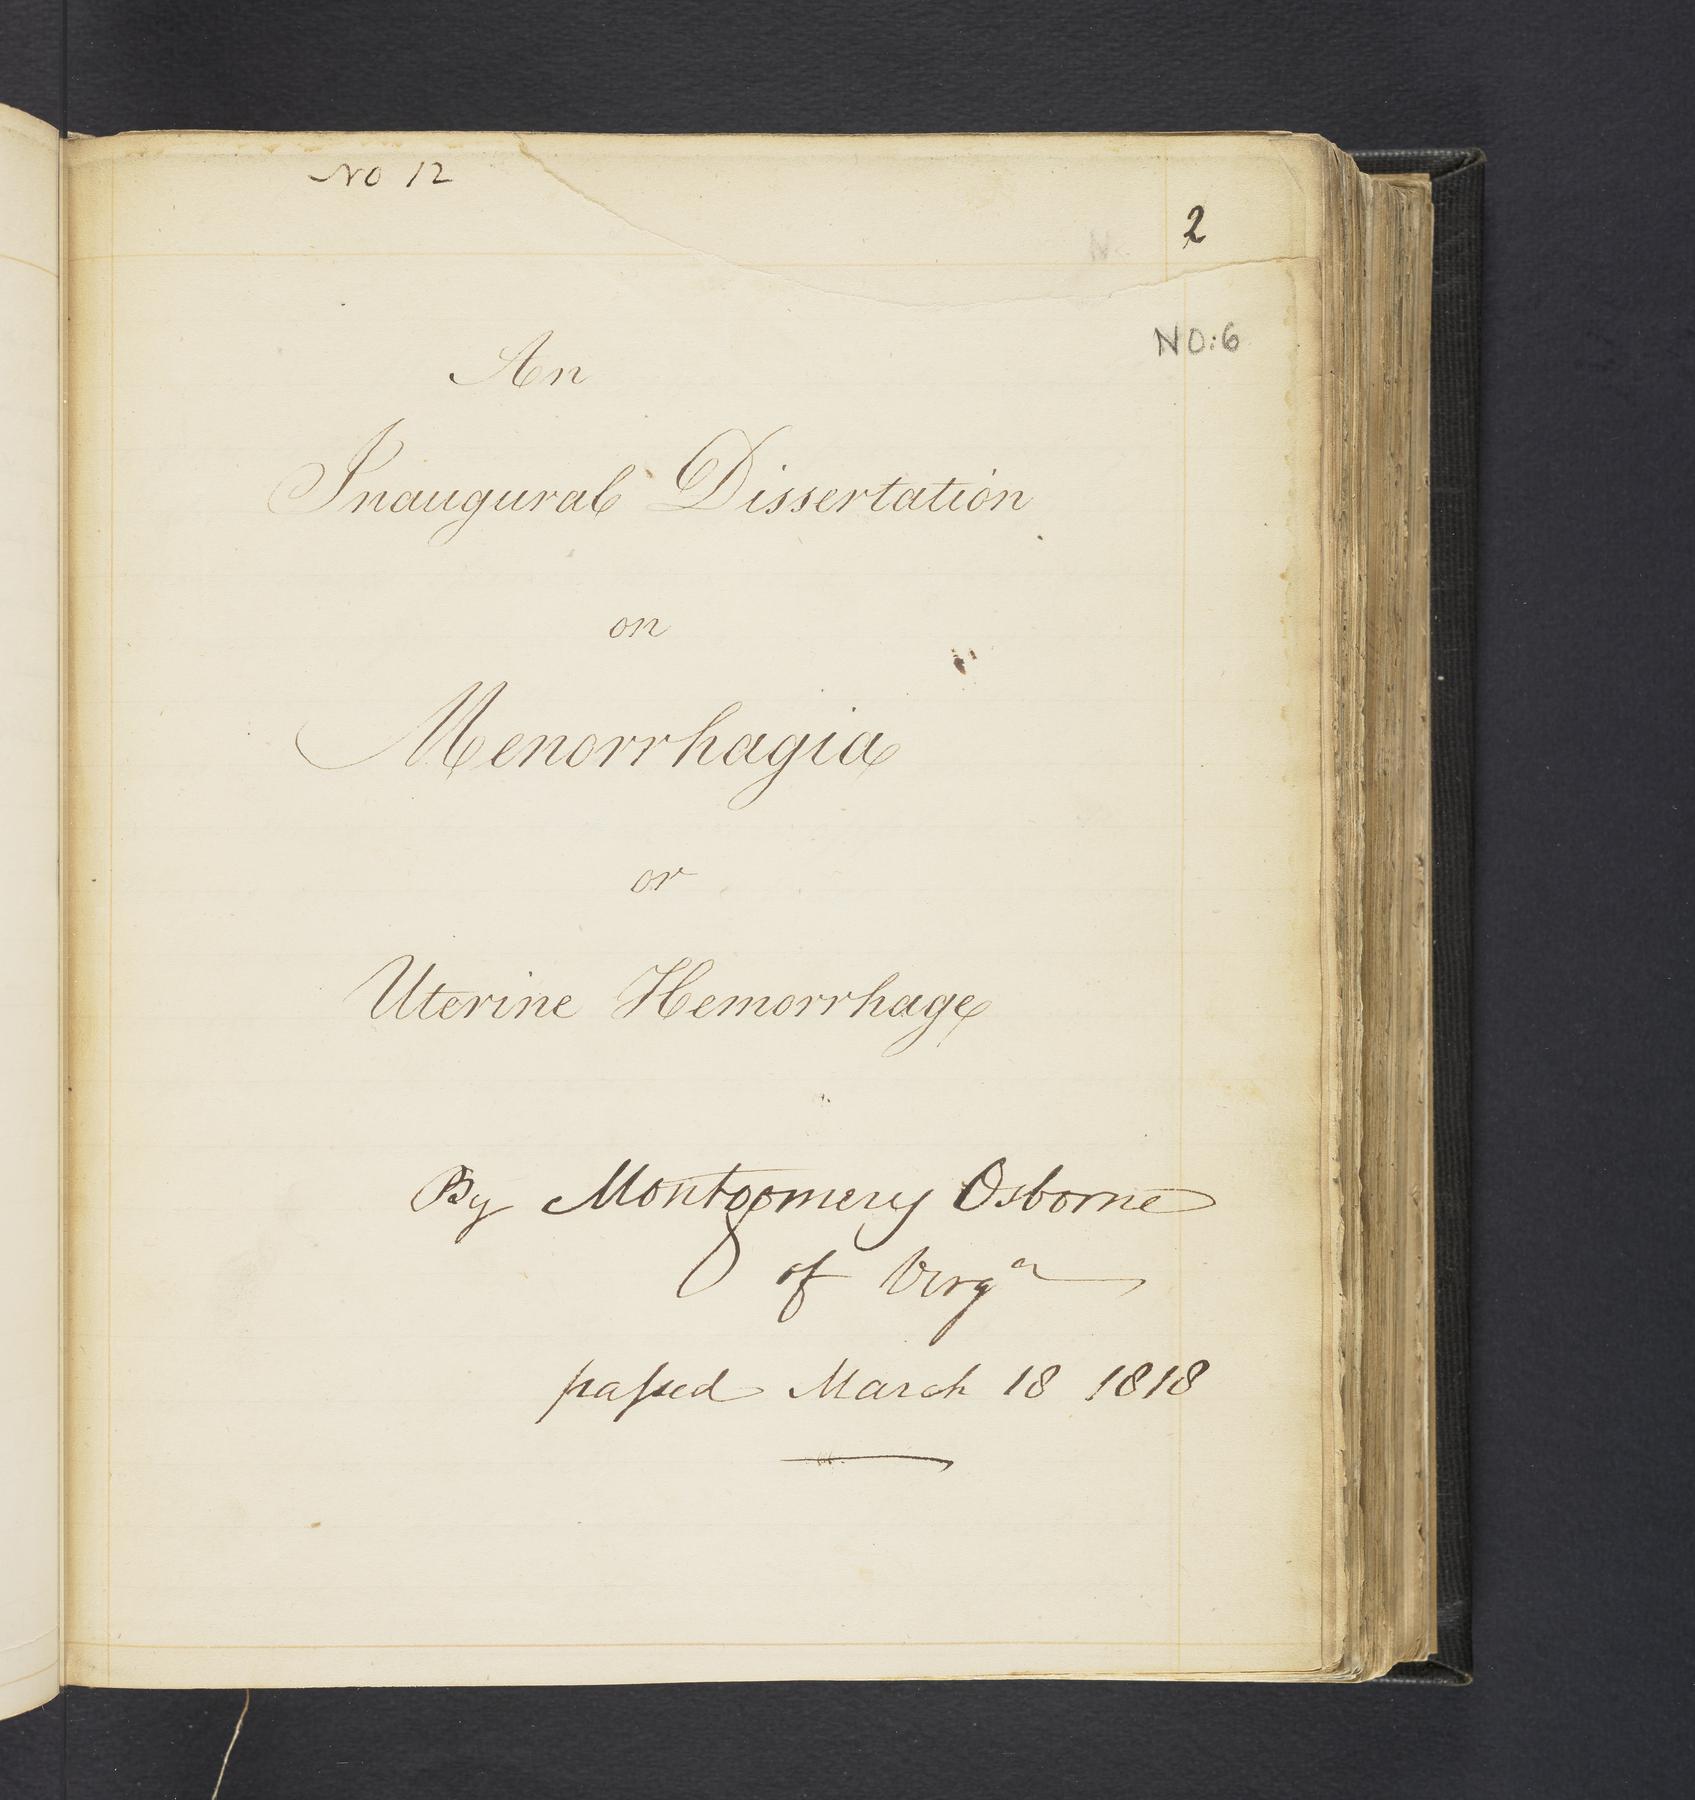 NO 12
2
NO:6
An
Inaugural Dissertation
on
Menorrhagia
or
Uterine Hemorrhage
By Montgomery Osborne
of Virgᵃ
paſsed March 18 1818